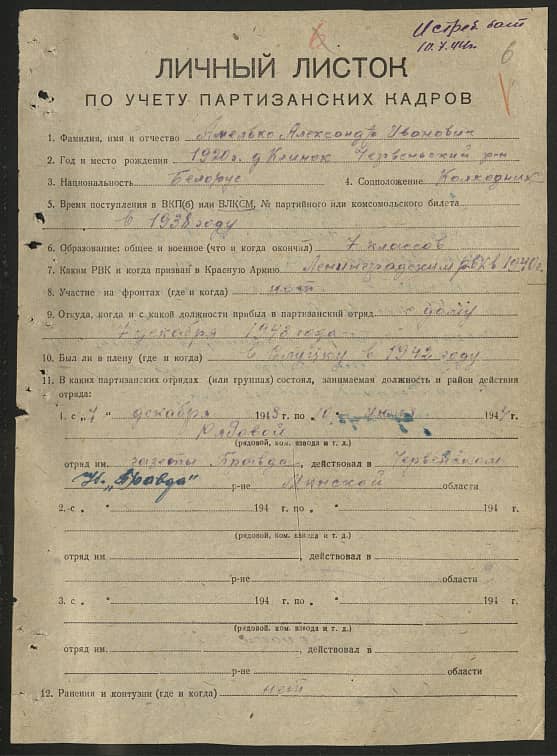 Истреб. бат
10.7.44г.
6
6
ЛИЧНЫЙ ЛИСТОК
ПО УЧЕТУ ПАРТИЗАНСКИХ КАДРОВ
1. Фамилия, имя и отчество Амелько Александр Иванович
2. Год и место рождения 1920г. д Клинок Червеньский р-н
3. Национальность Белорус 4. Соцположение Колхозник
5. Время поступления в ВКП(б) или ВЛКСМ, № партийного или комсомольского билета
в 1938 году
6. Образование: общее и военное (что и когда окончил) 7 классов
7. Каким РВК и когда призван в Красную Армию Ленинградским РВК в 1940г.
8. Участие на фронтах (где и когда) нет
9. Откуда, когда и с какой должности прибыл в партизанский отряд с дому
7 декабря 1943 года
10. Был ли в плену (где и когда) в Слуцку в 1942 году
11. В каких партизанских отрядах (или группах) состоял, занимаемая должность и район действия
отряда:
1. с „7" декабря 1943 г. по „10" 1944 г.
Рядовой
(рядовой, ком. взвода и т. д.)
отряд им. газеты Правда, действовал в Червенском
Н. „Правда" р-не Минской области
2. с „ " 194 г. по „ " 194 г.
(рядовой, ком. взвода и т. д.)
отряд им. , действовал в
р-не области
3. с „ " 194 г. по „ " 194 г.
(рядовой, ком. взвода и т. д.)
отряд им. , действовал в
р-не области
12. Ранения и контузии (где и когда) нет